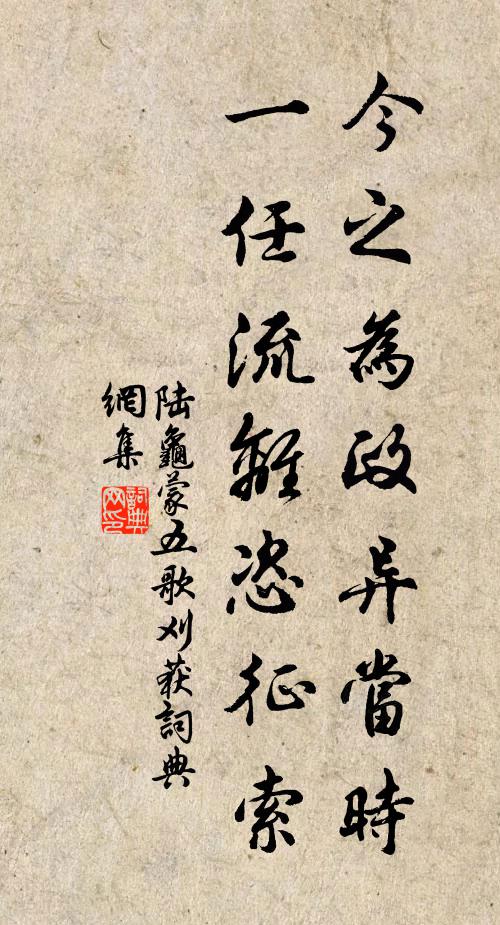 今之為政异當時
一任流離恣征索
陆龜蒙五歌刈获詞典
網集
詞典
网印